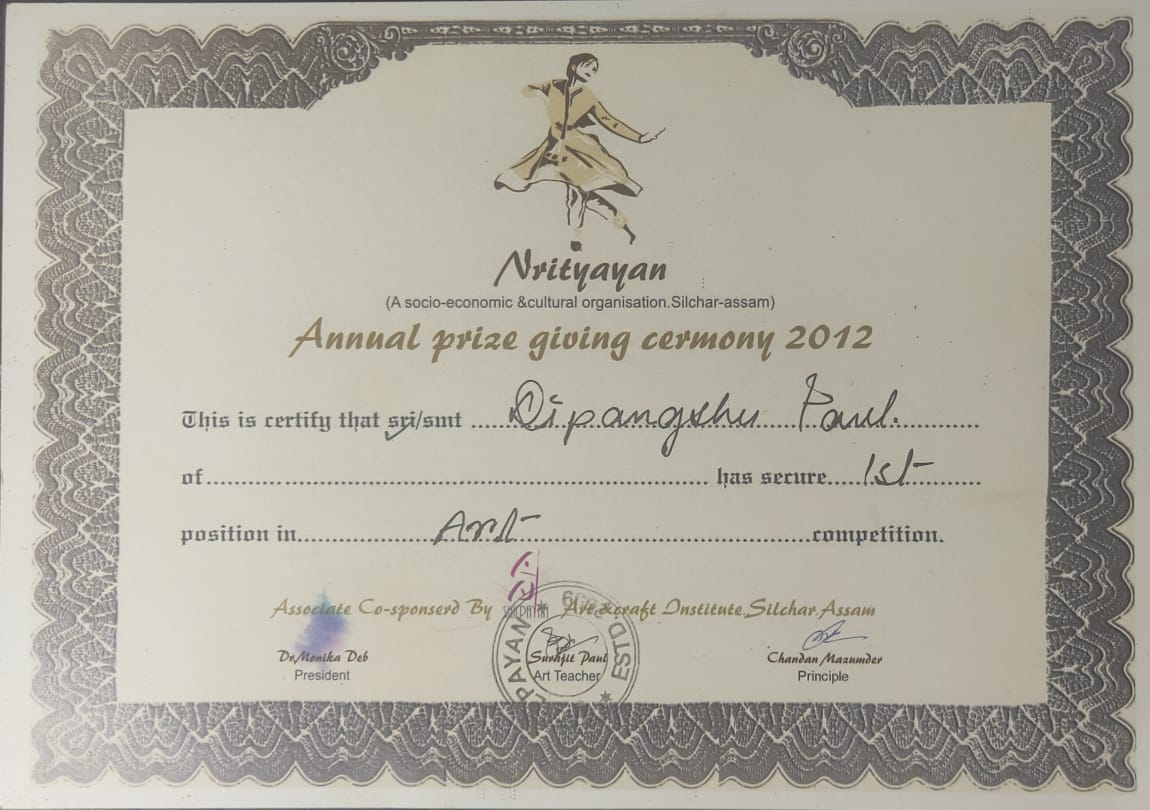 Nrityayan
(A socio-economic &cultural organisation.Silchar-assam)
Annual prize giving cermony 2012
This is certify that sri/smt ....Dipangshu Paul.....
of.................... has secure....1st....
position in..........Art....................competition.
Associate Co-sponserd By SHILPAYAN Art &craft Institute,Silchar,Assam
Dr,Monika Deb
President
Surajit Paul
Art Teacher
Chandan Mazumder
Principle
PAYAN
ESTD